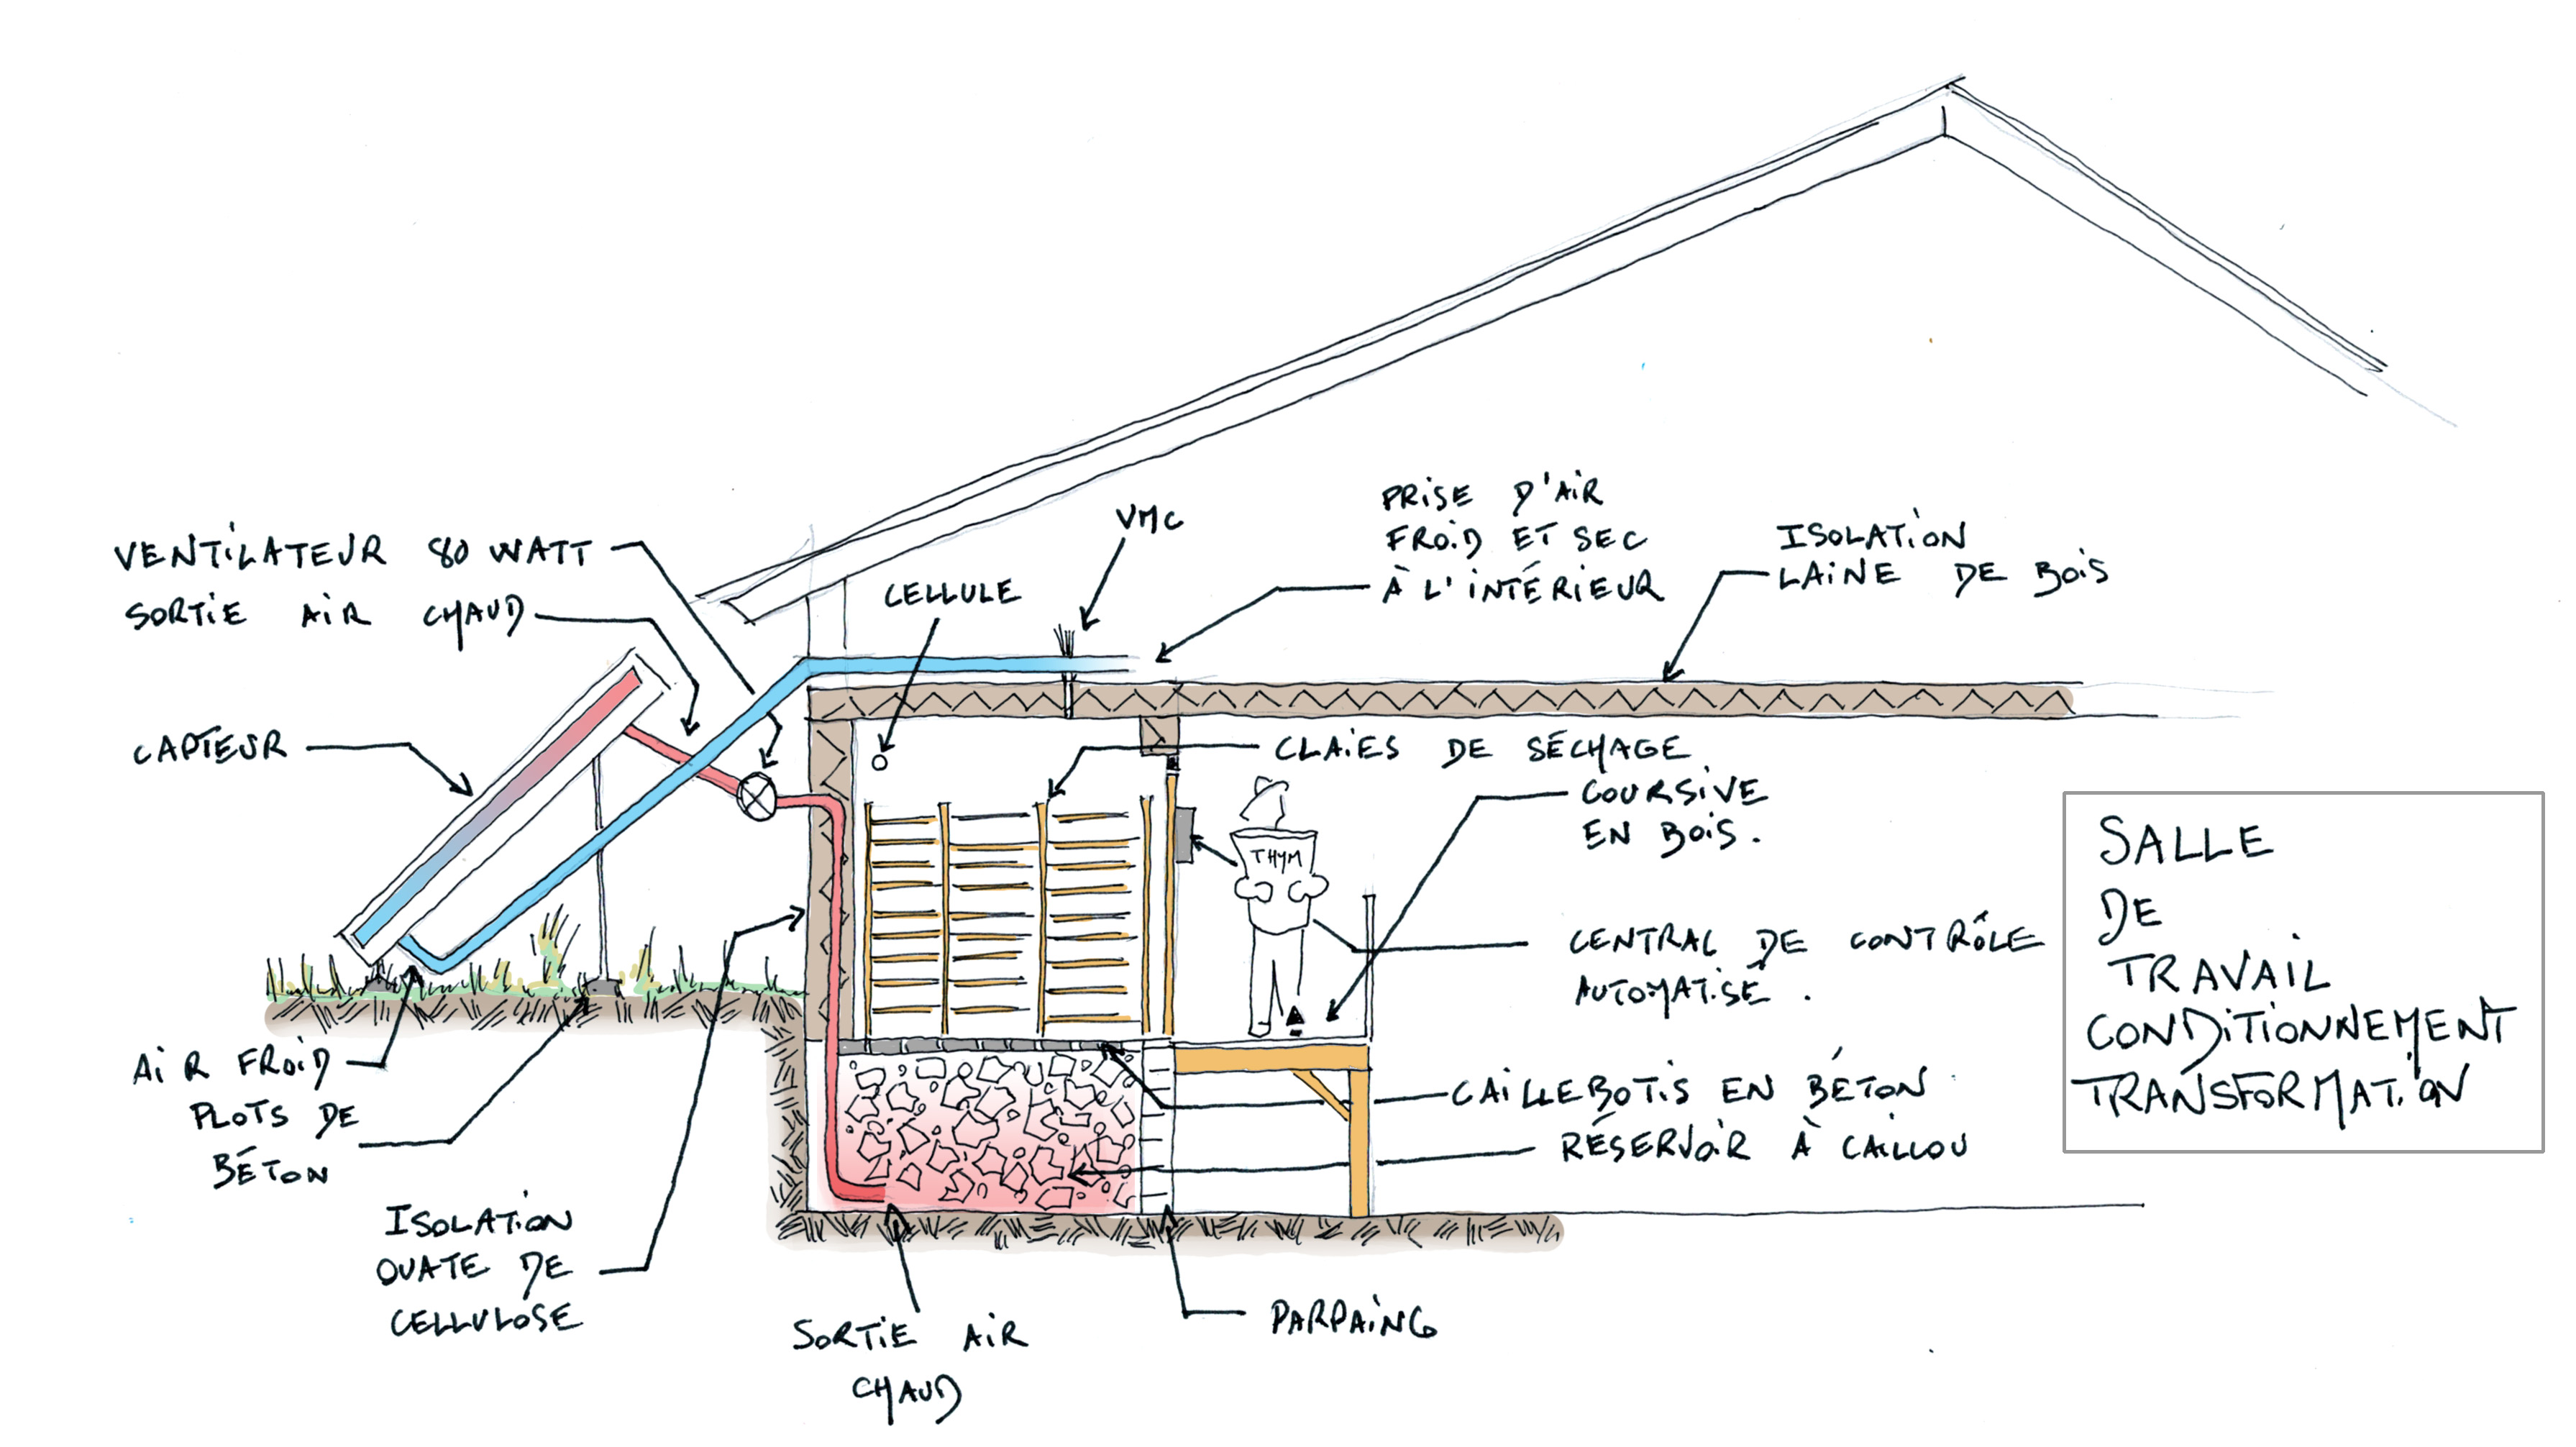 VENTILATEUR 80 WATT
SORTIE AIR CHAUD
CAPTEUR
CELLULE
VMC
PRISE D'AIR
FROID ET SEC
À L'INTÉRIEUR
ISOLATION
LAINE DE BOIS
CLAIES DE SÉCHAGE
COURSIVE
EN BOIS.
THYM
CENTRAL DE CONTRÔLE
AUTOMATISÉ.
SALLE
DE
TRAVAIL
CONDITIONNEMENT
TRANSFORMATION
AIR FROID
PLOTS DE
BÉTON
CAILLEBOTIS EN BÉTON
RÉSERVOIR À CAILLOU
ISOLATION
OUATE DE
CELLULOSE
SORTIE AIR
CHAUD
PARPAING